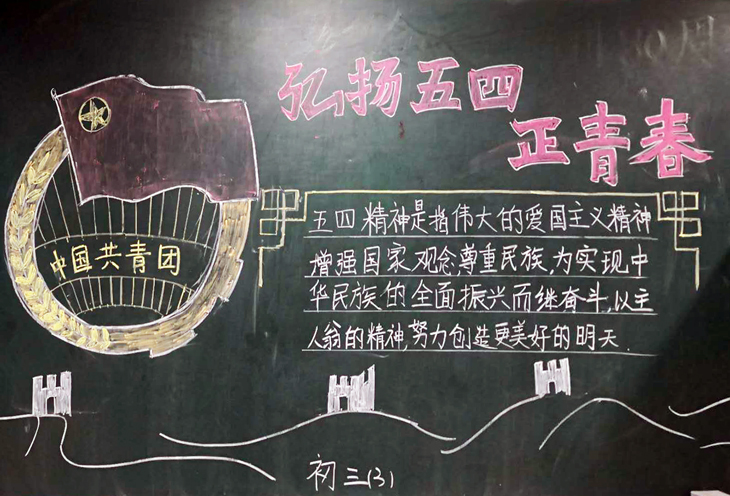 弘扬五四
正青春
五四精神是指伟大的爱国主义精神
增强国家观念,尊重民族,为实现中
华民族的全面振兴而继奋斗,以主
人翁的精神,努力创造更美好的明天.
中国共青团
初三(3)